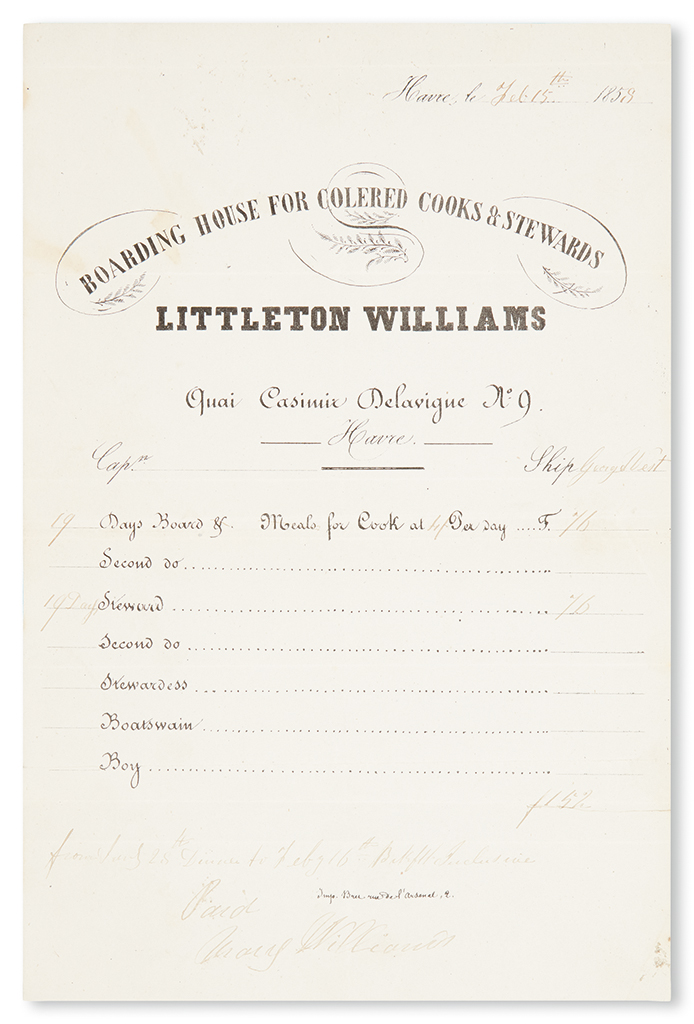 Havre, le Feb 15th 1858
BOARDING HOUSE FOR COLERED COOKS & STEWARDS
LITTLETON WILLIAMS
Quai Casimir Delavigne No 9.
Havre.
Capn Ship
19 Days Board & Meals for Cook at 4f Per day .... F. 76
Second do
19 Days Steward 76
Second do
Stewardess
Boatswain
Boy
f 152
from 25th Dinner to Feby 16th Inclusive
Paid
Imp. Bree rue de l'Arsenal, 2.
Williams